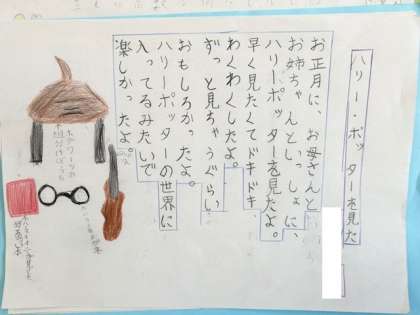 ハリー・ポッターを見た
お正月に、お母さんと
お姉ちゃんといっしょに、
ハリーポッターを見たよ。
早く見たくてドキドキ
わくわくしたよ。
ずっと見ちゃうぐらい
おもしろかったよ。
ハリーポッターの世界に
入ってるみたいで
楽しかったよ。